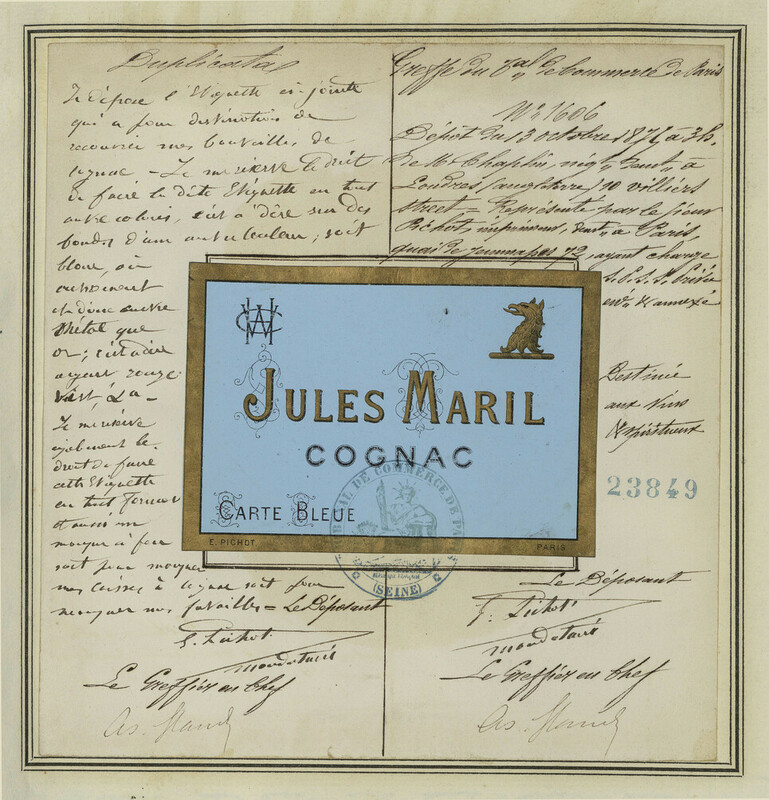 Duplicata
Je dépose l'Etiquette ci-jointe
qui a pour destination de
recouvrir mes bouteilles de
cognac - Je me réserve le droit
de faire la dite Etiquette en tout
autre coloris, c'est à dire sur des
fonds d'une autre couleur; soit
blanc, ou
et d'une autre
métal que
or; c'est à dire
argent rouge
vert, &a -
Je me réserve
également le
droit de faire
cette Etiquette
en tout format
et aussi un
marque à feu
soit pour marquer
mes caisses à cognac soit pour
marquer mes futailles = Le Déposant
E. Pichot
mandataire
Le Greffier en Chef
Greffe du Tal de Commerce de Paris
No 1606
Dépôt du 13 octobre 1876 à 3h.
de Mr Chaplin, négt, demt à
Londres (angleterre) 10 villiers
street = Représenté par le sieur
Pichot, imprimeur, demt à Paris,
quai de Jemmapes 72, ayant charge
Destinée
aux Vins
& Spiritueux
23849
Le Déposant
E. Pichot
mandataire
Le Greffier en Chef
JULES MARIL
COGNAC
CARTE BLEUE
E. PICHOT
PARIS
TRIBUNAL DE COMMERCE DE PARIS
(SEINE)